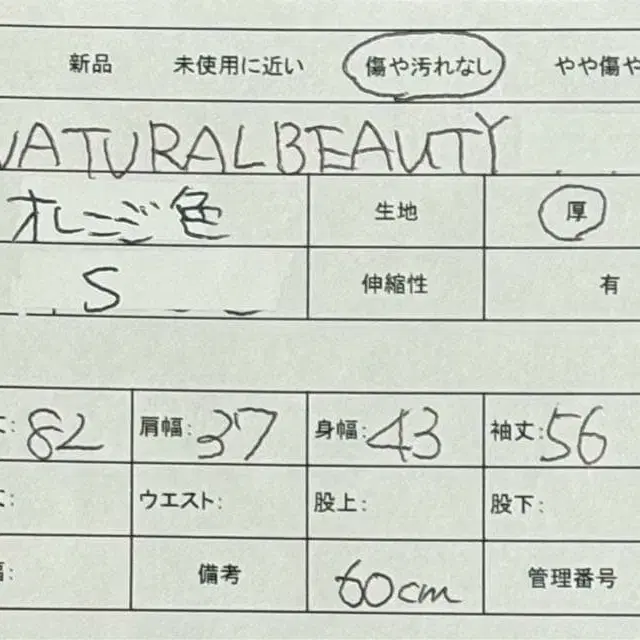 新品 未使用に近い 傷や汚れなし やや傷や
NATURALBEAUTY
オレンジ色 生地 厚
S 伸縮性 有
丈: 82 肩幅: 37 身幅: 43 袖丈: 56
丈: ウエスト: 股上: 股下:
幅: 備考 60cm 管理番号